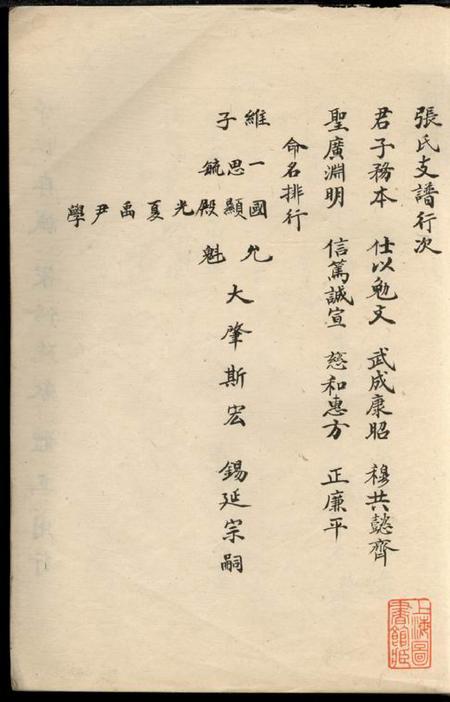 張氏支譜行次
君子務本 仕以勉文 武成康昭 穆共懿齊
聖廣淵明 信篤誠宣 慈和惠方 正廉平
命名排行
維一國允
思顯 大肇斯宏 錫延宗嗣
子毓殿魁
光
夏
禹
尹
學
上海圖
書館藏